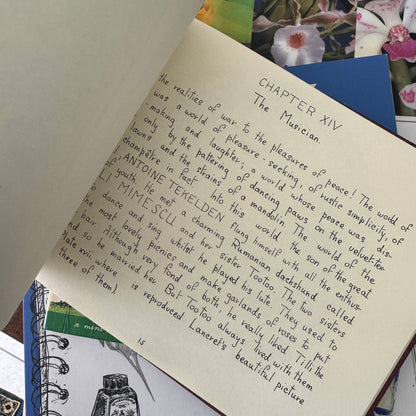 CHAPTER XIV
The Musician
the realities of war to the pleasures of peace! The world of
was a world of pleasure-seeking, of rustic simplicity, of
making and laughter; a world whose peace was dis-
only by the pattering of dancing paws on the
lawns and the strains of a mandolin. The world of the
champêtre in fact. Into this world the son of the great
ANTOINE TEKELDEN flung himself with all the enthus-
of youth. He met a charming Rumanian dachshund called
LI MIMESCU and her sister Tootoo. The two sisters
to dance and sing whilst he played his lute. They used to
the most lovely picnics and make garlands of roses to put
hair. Although very fond of both, he really liked Tilli the
and so he married her. But Tootoo always lived with them
late xvii, where is reproduced Lancret's beautiful picture
three of them)
15
a mom